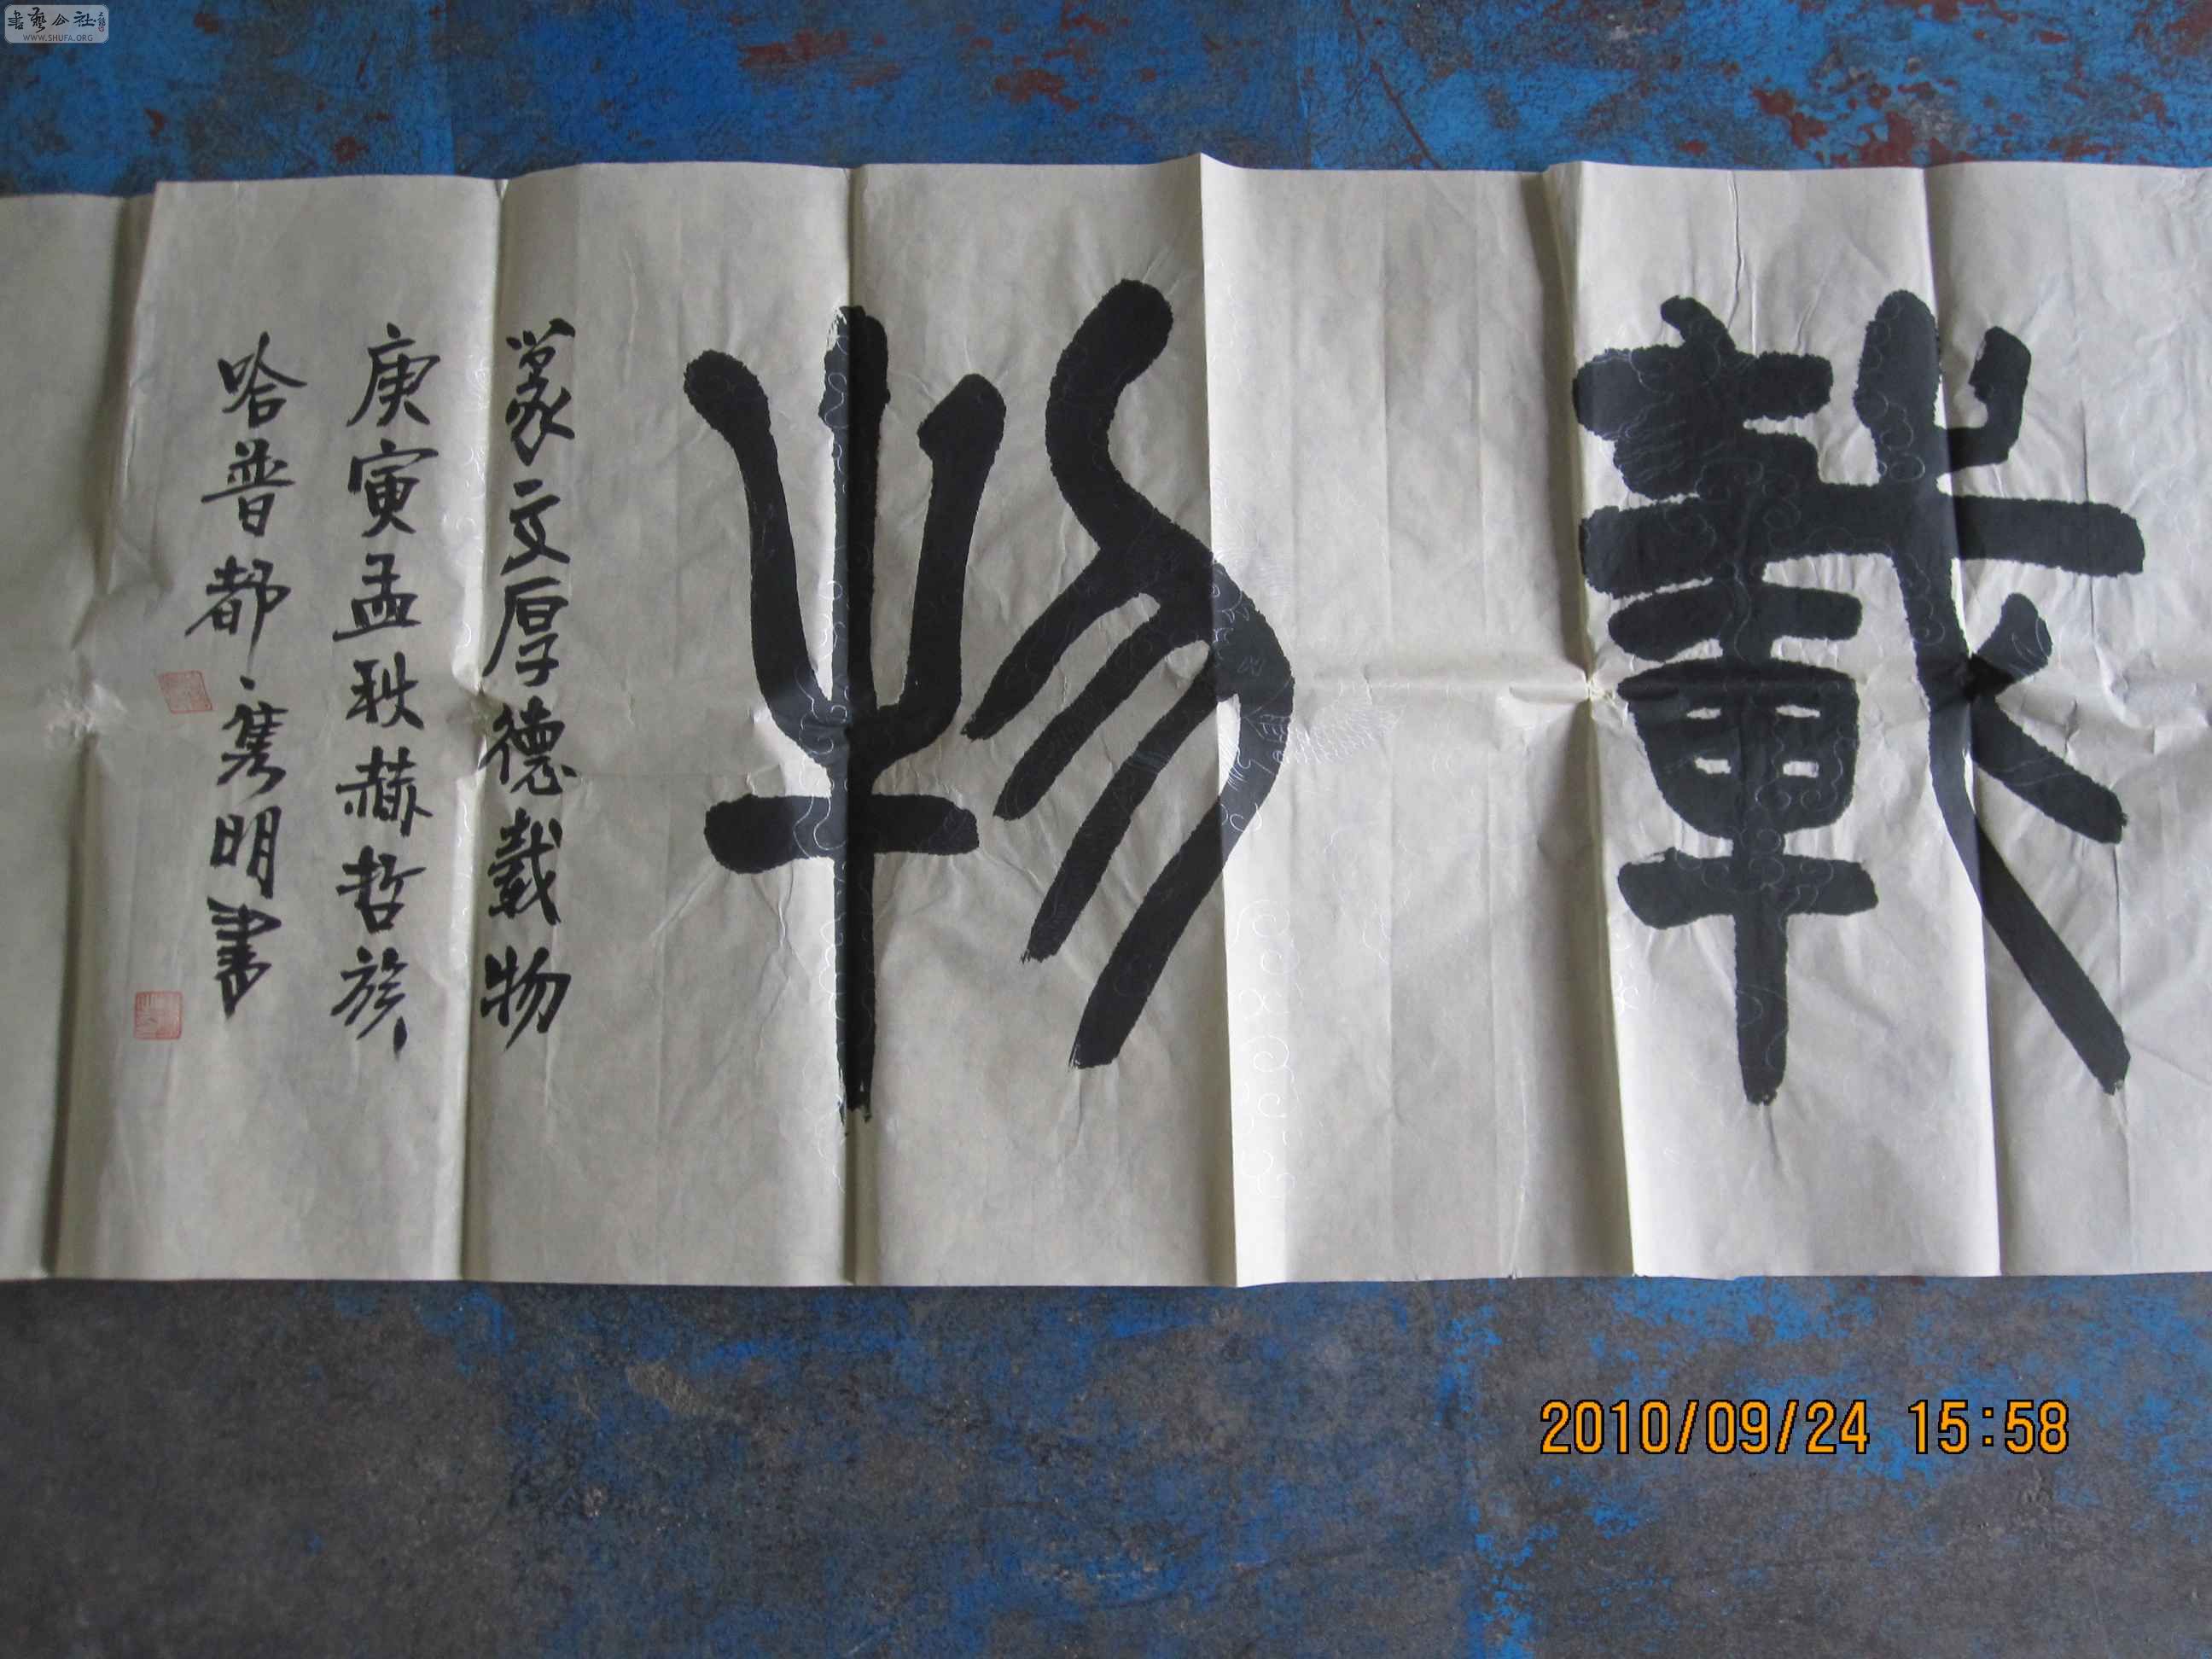 書藝公社
WWW.SHUFA.ORG
載物
篆文厚德載物
庚寅孟秋赫哲族
哈普都·隽明書
2010/09/24 15:58